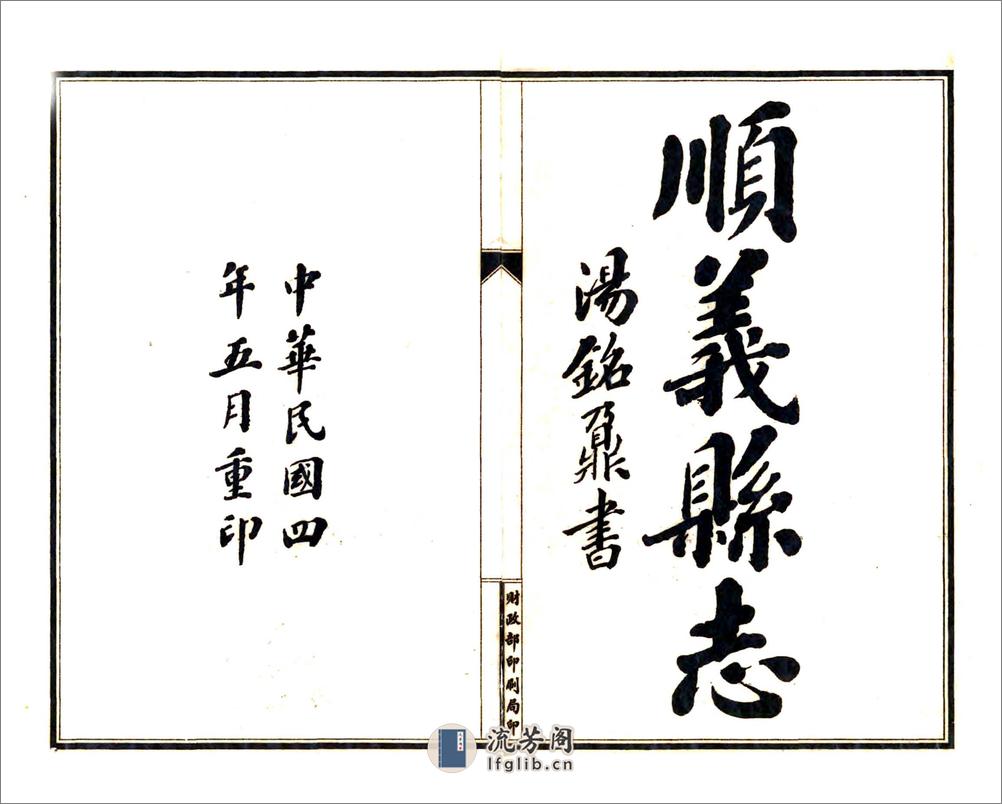 順義縣志
湯銘鼐書
財政部印刷局印
中華民國四
年五月重印
流芳阁
lfglib.cn